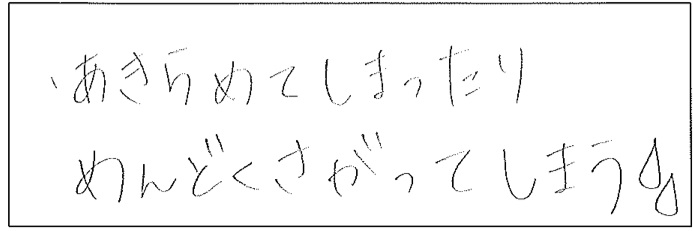 、あきらめてしまったり
めんどくさがってしまう💧